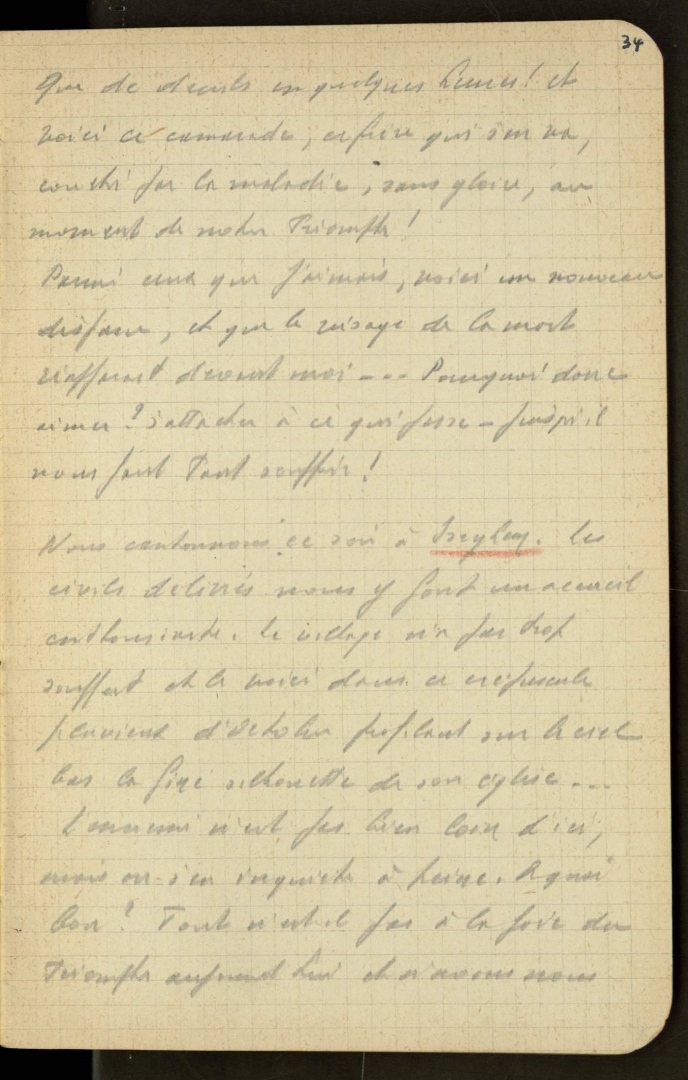 34
Que de deuils en quelques heures! et
voici ce camarade, ce frère qui s'en va,
couché par la maladie, sans gloire, au
moment de notre Triomphe!
Parmi ceux que j'aimais, voici un nouveau
disparu, et que le visage de la mort
réapparaît devant moi --- Pourquoi donc
aimer? s'attacher à ce qui passe - puisqu'il
nous faut tant souffrir!
Nous cantonnons ce soir à . Les
civils délivrés nous y font un accueil
enthousiaste. Le village n'a pas trop
souffert et le voici dans ce crépuscule
pluvieux d'Octobre profilant sur le ciel
bas la fine silhouette de son église ...
L'ennemi n'est pas bien loin d'ici,
mais on s'en inquiète à peine. A quoi
bon? Tout n'est-il pas à la joie du
Triomphe aujourd'hui et n'avons nous